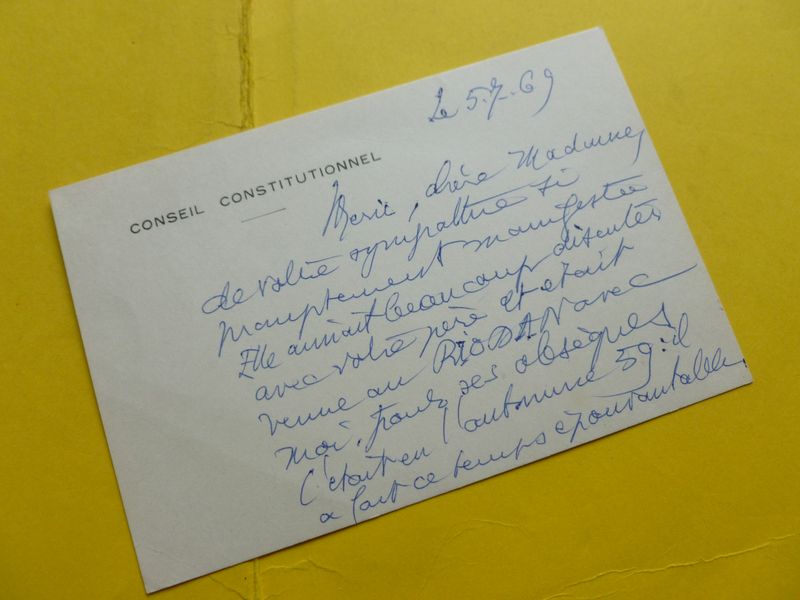 CONSEIL CONSTITUTIONNEL
Le 5.7.69
Merci, chère Madame,
de votre sympathie si
promptement manifestée
Elle aimait beaucoup discuter
avec votre père et était
venue au avec
moi, pour ses obsèques
C'était en l'automne 59 : il
a fait ce temps épouvantable